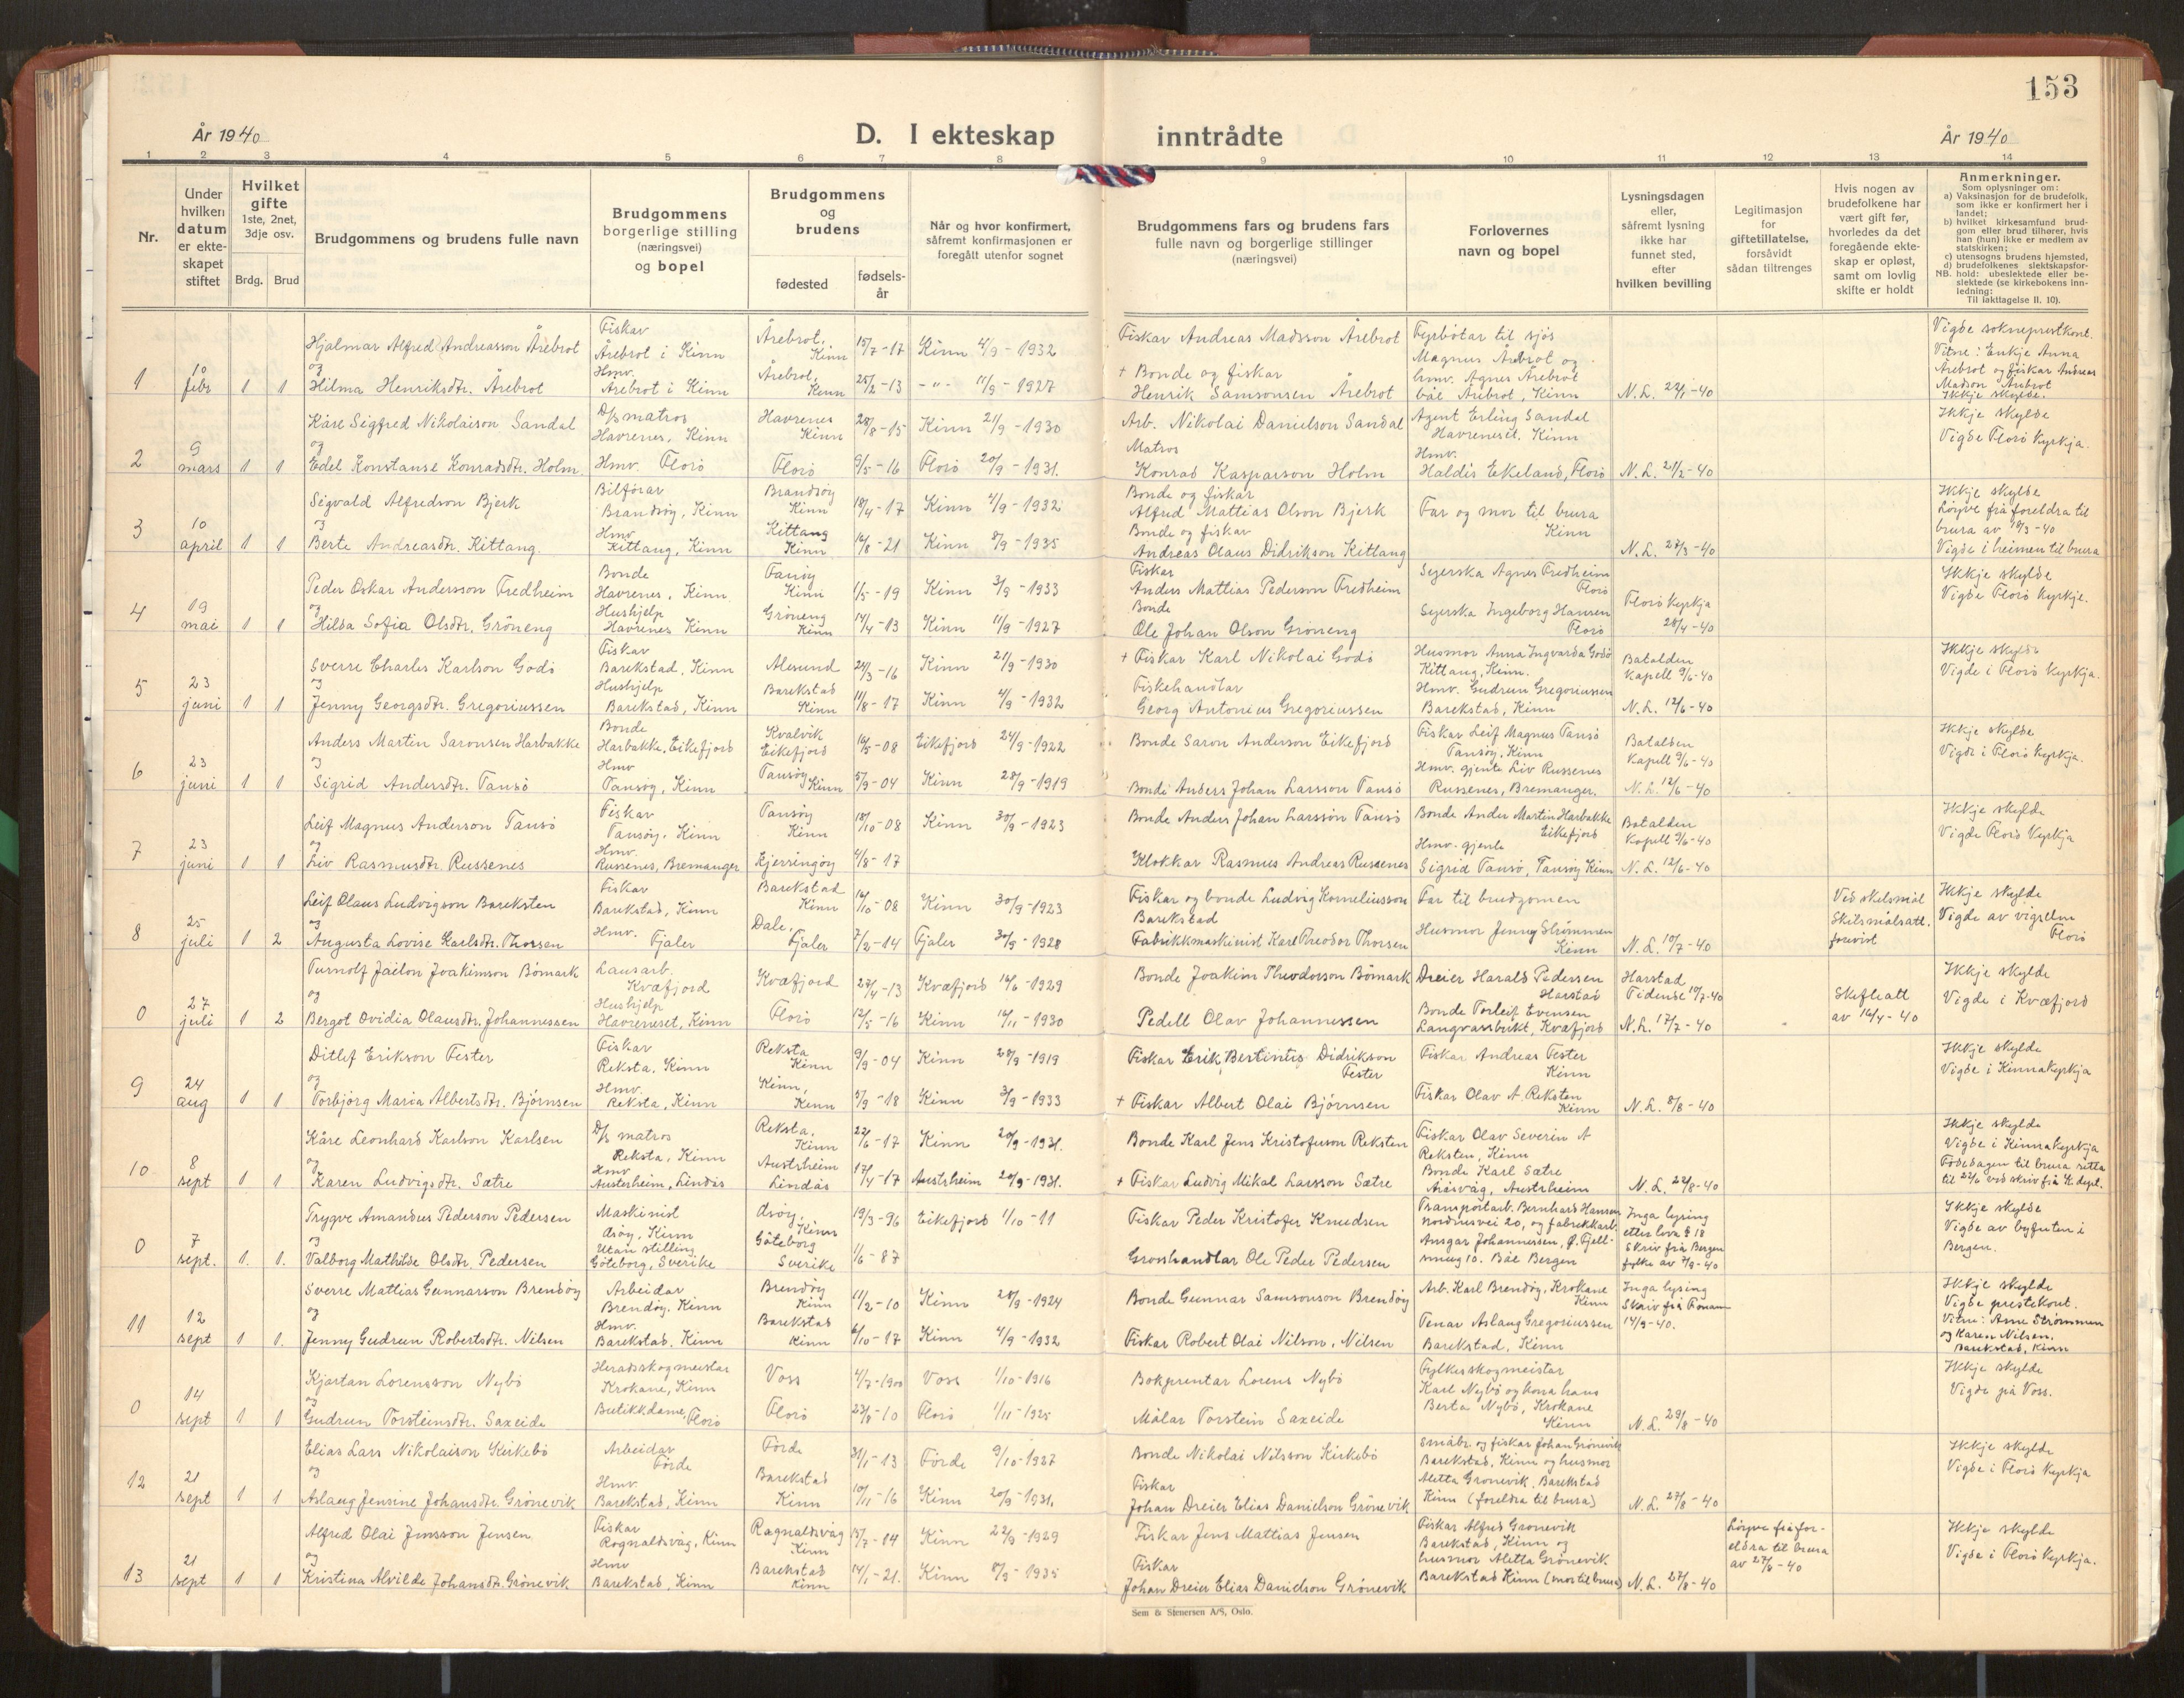 153
År 1940
D. I ekteskap inntrådte
År 1940
1 2 3 4 5 6 7 8 9 10 11 12 13 14
Nr.
Under hvilken datum er ekteskapet stiftet
Hvilket gifte 1ste, 2net, 3dje osv.
Brdg. Brud
Brudgommens og brudens fulle navn
Brudgommens borgerlige stilling (næringsvei) og bopel
Brudgommens og brudens
fødested
fødselsår
Når og hvor konfirmert, såfremt konfirmasjonen er foregått utenfor sognet
Brudgommens fars og brudens fars fulle navn og borgerlige stillinger (næringsvei)
Forlovernes navn og bopel
Lysningsdagen eller, såfremt lysning ikke har funnet sted, efter hvilken bevilling
Legitimasjon for giftetillatelse, forsåvidt sådan tiltrenges
Hvis nogen av brudefolkene har vært gift før, hvorledes da det foregående ekteskap er opløst, samt om lovlig skifte er holdt
Anmerkninger.
Som oplysninger om:
a) Vaksinasjon for de brudefolk, som ikke er konfirmert her i landet;
b) hvilket kirkesamfund brudgom eller brud tilhører, hvis han (hun) ikke er medlem av statskirken;
c) utensogns brudens hjemsted,
d) brudefolkenes slektskapsforhold: ubeslektede eller beslektede (se kirkebokens innledning:
NB. Til iakttagelse II. 10).
1
10 febr
1 1
Hjalmar Alfred Andreasson Årebrot
og
Hilma Henriksdtr. Årebrot
Fiskar
Årebrot i Kinn
Hmv.
Årebrot i Kinn
Årebrot, Kinn
Årebrot, Kinn
15/7-17
25/2-13
Kinn 4/9-1932
-"- 11/9-1927
Fiskar Andreas Madsson Årebrot
+ Bonde og fiskar
Henrik Samsonsen Årebrot
Fyrbøtar til sjøs
Magnus Årebrot og
hmv. Agnes Årebrot
båe Årebrot, Kinn
N.L. 22/1-40
Vigde sokneprestkont.
Vitne: Enkje Anna
Årebrot og fiskar Andreas
Madson Årebrot
Ikkje skylde.
2
9 mars
1 1
Kåre Sigfred Nikolaison Sandal
og
Edel Konstanse Konradsdtr. Holm
D/s matros
Havrenes, Kinn
Hmv. Florø
Havrenes Kinn
Florø
28/8-15
9/5-16
Kinn 21/9-1930
Florø 20/9-1931.
Arb. Nikolai Danielson Sandal
Matros
Konrad Kasparson Holm
Agent Erling Sandal
Havreneset, Kinn
Hmv.
Haldis Ekeland, Florø
N.L. 21/2-40
Ikkje skylde
Vigde Florø kyrkja.
3
10 april
1 1
Segvald Alfredson Bjerk
og
Berte Andreasdtr. Kittang.
Bilførar
Brandsøy, Kinn
Hmv
Kittang, Kinn
Brandsøy Kinn
Kittang Kinn
18/4-17
16/8-21
Kinn 4/9-1932
Kinn 8/9-1935
Bonde og fiskar
Alfred Mattias Olson Bjerk
Bonde og fiskar
Andreas Olaus Didrikson Kittang
Far og mor til brura
Kinn
N.L. 27/3-40
Ikkje skylde
Løyve frå foreldra til
brura av 19/3-40
Vigde i heimen til brura
4
19 mai
1 1
Peder Oskar Andersson Fredheim
og
Hilda Sofia Olsdtr. Grøneng
Bonde
Havrenes, Kinn
Hushjelp
Havrenes Kinn
Fansøy Kinn
Grøneng Kinn
1/5-19
14/4-13
Kinn 3/9-1933
Kinn 11/9-1927
Fiskar
Anders Mattias Pederson Fredheim
Bonde
Ole Johan Olson Grøneng
Syerska Agnes Fredheim
Florø
Syerska Ingeborg Hansen
Florø
Florø kyrkja
28/4-40
Ikkje skylde
Vigde Florø kyrkje.
5
23 juni
1 1
Sverre Charles Karlson Godø
og
Jenny Georgsdtr. Gregoriussen
Fiskar
Barekstad, Kinn
Hushjelp
Barekstad, Kinn
Ålesund
Barekstad Kinn
24/3-16
11/8-17
Kinn 21/9-1930
Kinn 4/9-1932
+ Fiskar Karl Nikolai Godø
Fiskehandlar
Georg Antonius Gregoriussen
Husmor Anna Ingvarda Godø
Kittang, Kinn.
Hmv. Gudrun Gregoriussen
Barekstad, Kinn
Batalden
Kapell 9/6-40
N.L. 12/6-40
Ikkje skylde
Vigde i Florø kyrkja.
6
23 juni
1 1
Anders Martin Saronsen Harbakke
og
Sigrid Andersdtr. Tansø
Bonde
Harbakke, Eikefjord
Hmv
Tansøy, Kinn
Kvalvik Eikefjord
Tansøy Kinn
16/5-08
5/9-04
Eikefjord 24/9-1922
Kinn 28/9-1919
Bonde Saron Anderson Eikefjord
Bonde Anders Johan Larsson Tansø
Fiskar Leif Magnus Tansø
Tansøy, Kinn
Hmv. gjente Liv Russenes
Russenes, Bremanger.
Batalden
Kapell 9/6-40
N.L. 12/6-40
Ikkje skylde
Vigde i Florø kyrkja.
7
23 juni
1 1
Leif Magnus Anderson Tansø
og
Liv Rasmusdtr. Russenes
Fiskar
Tansøy, Kinn
Hmv.
Russenes, Bremanger
Tansøy Kinn
Kjerringøy
18/10-08
4/8-17
Kinn 30/9-1923
Bonde Anders Johan Larsson Tansø
Klokkar Rasmus Andreas Russenes
Bonde Ander Martin Harbakke
Eikefjord
Hmv. gjente
Sigrid Tansø, Tansøy Kinn
Batalden
Kapell 9/6-40
N.L. 12/6-40
Ikkje skylde
Vigde Florø kyrkja
8
25 juli
1 2
Leif Olaus Ludvigson Bareksten
og
Augusta Lovise Karlsdtr. Thorsen
Fiskar
Barekstad, Kinn
Hmv. Fjaler
Barekstad Kinn
Dale, Fjaler
16/10-08
7/2-14
Kinn 30/9-1923
Fjaler 30/9-1928
Fiskar og bonde Ludvig Korneliusson
Barekstad
Fabrikkmaskinist Karl Theodor Thorsen
Far til brudgomen
Husmor Jenny Strømmen
Kinn
N.L. 10/7-40
Ved skilsmål
Skilsmålsatt.
forevist
Ikkje skylde
Vigde av vigselm
Florø
0
27 juli
1 2
Turnolf Jæilon Joakimson Bømark
og
Bergot Ovidia Olausdtr. Johannessen
Lausarb.
Kvæfjord
Hushjelp
Havreneset, Kinn
Kvæfjord
Florø
27/4-13
12/5-16
Kvæfjord 16/6-1929
Kinn 16/11-1930
Bonde Joakim Theodorson Bømark
Pedell Olav Johannessen
Dreier Harald Pedersen
Harstad
Bonde Torleif Evensen
Langvassbukt, Kvæfjord
Harstad
Tidende 10/7-40
N.L. 17/7-40
Skifteatt
av 16/4-40
Ikkje skylde
Vigde i Kvæfjord
9
24 aug
1 1
Ditlef Erikson Fester
og
Torbjørg Maria Albertsdtr. Bjørnsen
Fiskar
Reksta, Kinn
Hmv.
Reksta, Kinn
Reksta Kinn
Kinn, Kinn
9/9-04
5/9-18
Kinn 28/9-1919
Kinn 3/9-1933
Fiskar Erik Bertinus Didrikson
Fester
+ Fiskar Albert Olai Bjørnsen
Fiskar Andreas Fester
Kinn
Fiskar Olav A. Reksten
Kinn
N.L. 8/8-40
Ikkje skylde
Vigde i Kinnakyrkja
10
8 sept
1 1
Kåre Leonhard Karlson Karlsen
og
Karen Ludvigsdtr. Sætre
D/s matros
Reksta, Kinn
Hmv
Austerheim, Lindås
Reksta, Kinn
Austrheim Lindås
22/6-17
17/4-17
Kinn 20/9-1931.
Austrheim 20/9-1931.
Bonde Karl Jens Kristofuson Reksten
+ Fiskar Ludvig Mikal Larsson Sætre
Fiskar Olav Severin A
Reksten, Kinn
Bonde Karl Sætre
Åråsvåg, Austrheim
N.L. 22/8-40
Ikkje skylde
Vigde i Kinnakyrkja
Fødedagen til brura retta
til 22/6 ved skriv frå K. dept.
0
7 sept.
1. 1.
Trygve Amandus Pederson Pedersen
og
Valborg Mathilde Olsdtr. Pedersen
Maskinist
Askøy, Kinn
Utan stilling
Göteborg, Sverike
Kinn
Göteborg Sverike
19/3-96
1/6-87
Eikefjord 1/10-11
Fiskar Peder Kristofer Knudsen
Grosshandlar Ole Peder Pedersen
Transportarb. Bernhard Hansen
Nordnesvei 20, og fabrikkarb.
Ansgar Johannessen, Ø. Fjell-
smug 10. Båe Bergen
Inga lysing
etter lova § 18
Skriv frå Bergen
fylke av 7/9-40
Ikkje skylde
Vigde av byfuten i
Bergen.
11
12 sept
1 1.
Sverre Mattias Gunnarson Brendøy
og
Jenny Gudrun Robertsdtr. Nilsen
Arbeidar
Brendøy, Kinn
Hmv.
Barekstad, Kinn
Brendøy Kinn
Barekstad Kinn
11/2-10
6/10-17
Kinn 28/9-1924
Kinn 4/9-1932
Bonde Gunnar Samsonson Brendøy
Fiskar Robert Olai Nilson, Nilsen
Arb. Karl Brendøy, Krokane
Kinn
Tenar Aslaug Gregoriussen
Barekstad, Kinn
Inga lysing
Skriv frå
14/9-40.
Ikkje skylde
Vigde prestekont.
Vitne: Arne Strømmen
og Karen Nilsen,
Barekstad, Kinn
0
14 sept
1 1
Kjartan Lorensson Nybø
og
Gudrun Torsteinsdtr. Saxeide
Heradsskogmeistar
Krokane, Kinn
Butikkdame, Florø
Voss
Florø
4/7-1900
23/8-10
Voss 1/10-1916
Florø 1/11-1925
Bokprentar Lorens Nybø
Målar Torstein Saxeide
Fylkesskogmeistar
Karl Nybø og kona hans
Berta Nybø, Krokane
Kinn
N.L. 29/8-40
Ikkje skylde
Vigde på Voss.
12
21 sept
1 1
Elias Lars Nikolaison Kirkebø
og
Aslaug Jensine Johansdtr. Grønevik
Arbeidar
Førde
Hmv
Barekstad, Kinn
Førde
Barekstad Kinn
31/1-13
10/11-16
Førde 9/10-1927
Kinn 20/9-1931.
Bonde Nikolai Nilsson Kirkebø
Fiskar
Johan Dreier Elias Danielson Grønevik
Småbr. og fiskar Johan Grønevik
Barekstad, Kinn og husmor
Aletta Grønevik, Barekstad
Kinn (foreldra til brura)
N.L. 27/8-40
Ikkje skylde
Vigde i Florø kyrkja
13
21 sept
1 1
Alfred Olai Jensson Jensen
og
Kristina Alvilde Johansdtr. Grønevik
Fiskar
Rognaldsvåg, Kinn
Hmv
Barekstad, Kinn
Rognaldsvåg Kinn
Barekstad Kinn
15/7-14
14/1-21.
Kinn 22/9-1929
Kinn 8/9-1935
Fiskar Jens Mattias Jensen
Fiskar
Johan Dreier Elias Danielson Grønevik
Fiskar Alfred Grønevik
Barekstad, Kinn og
husmor Aletta Grønevik
Barekstad Kinn (mor til brura)
N.L. 27/8-40
Løyve frå for-
eldra til brura
av 27/8-40
Ikkje skylde
Vigde i Florø kyrkja.
Sem & Stenersen A/S, Oslo.